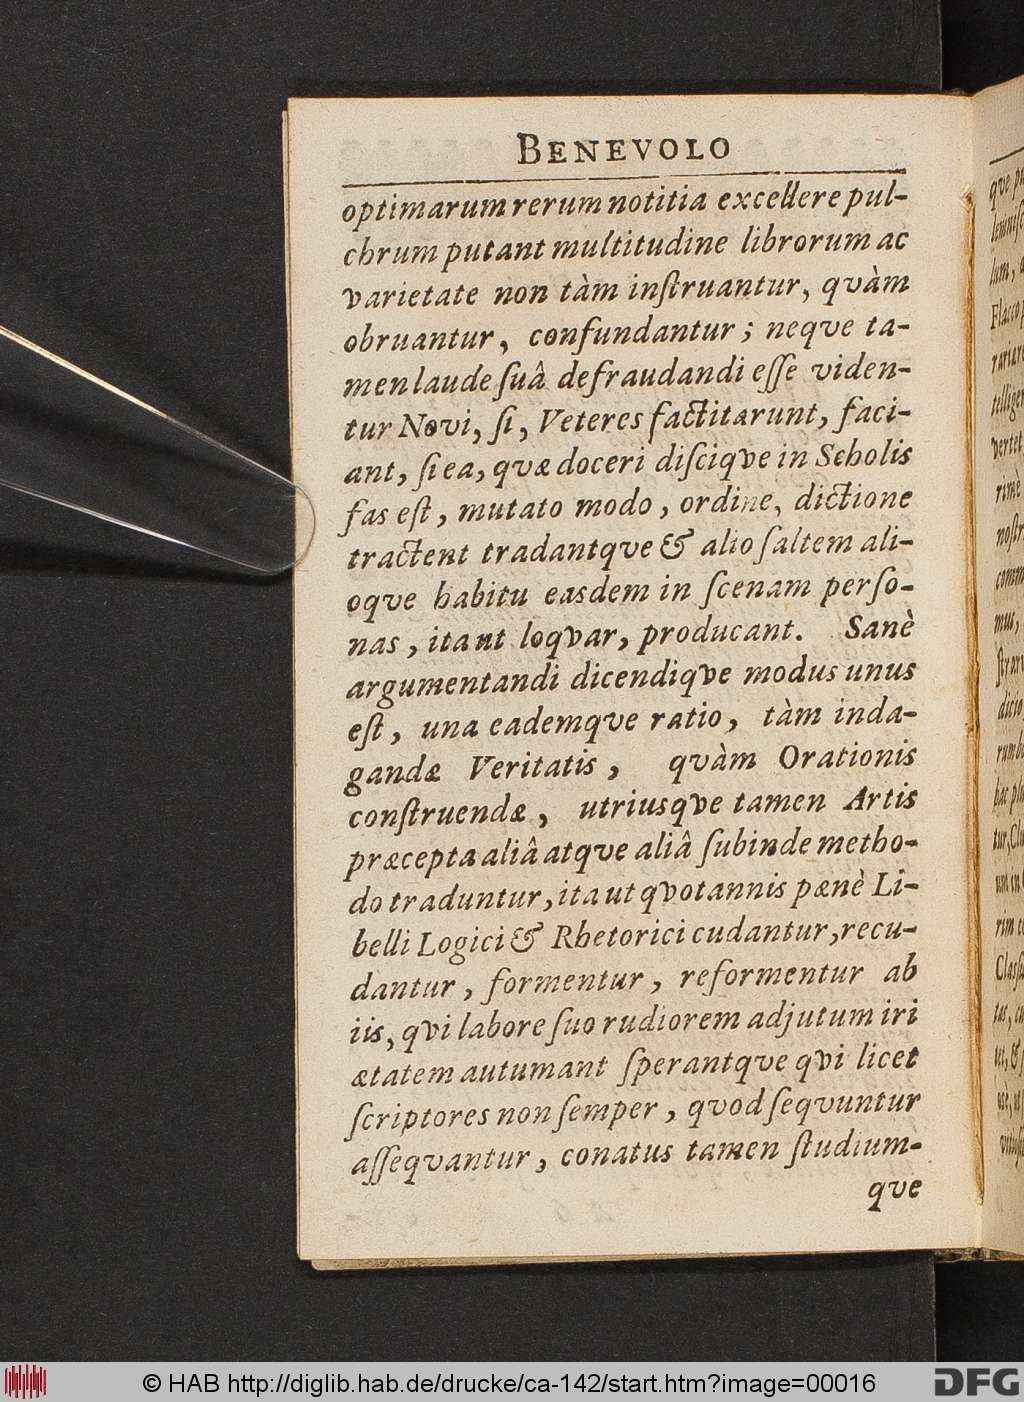 BENEVOLO
optimarum rerum notitia excellere pul-
chrum putant multitudine librorum ac
varietate non tàm inſtruantur, qvàm
obruantur, confundantur; neqve ta-
men laude ſuâ defraudandi eſſe viden-
tur Novi, ſi, Veteres factitarunt, faci-
ant, ſi ea, qvæ doceri diſciqve in Scholis
fas eſt, mutato modo, ordine, dictione
tractent tradantqve & alio ſaltem ali-
oqve habitu easdem in ſcenam perſo-
nas, ita ut loqvar, producant. Sanè
argumentandi dicendiqve modus unus
eſt, una eademqve ratio, tàm inda-
gandæ Veritatis, qvàm Orationis
conſtruendæ, utriusqve tamen Artis
præcepta aliâ atqve aliâ ſubinde metho-
do traduntur, ita ut qvotannis pænè Li-
belli Logici & Rhetorici cudantur, recu-
dantur, formentur, reformentur ab
iis, qvi labore ſuo rudiorem adjutum iri
ætatem autumant ſperantqve qvi licet
ſcriptores non ſemper, qvod ſeqvuntur
aſſeqvantur, conatus tamen ſtudium-
qve
© HAB http://diglib.hab.de/drucke/ca-142/start.htm?image=00016
DFG